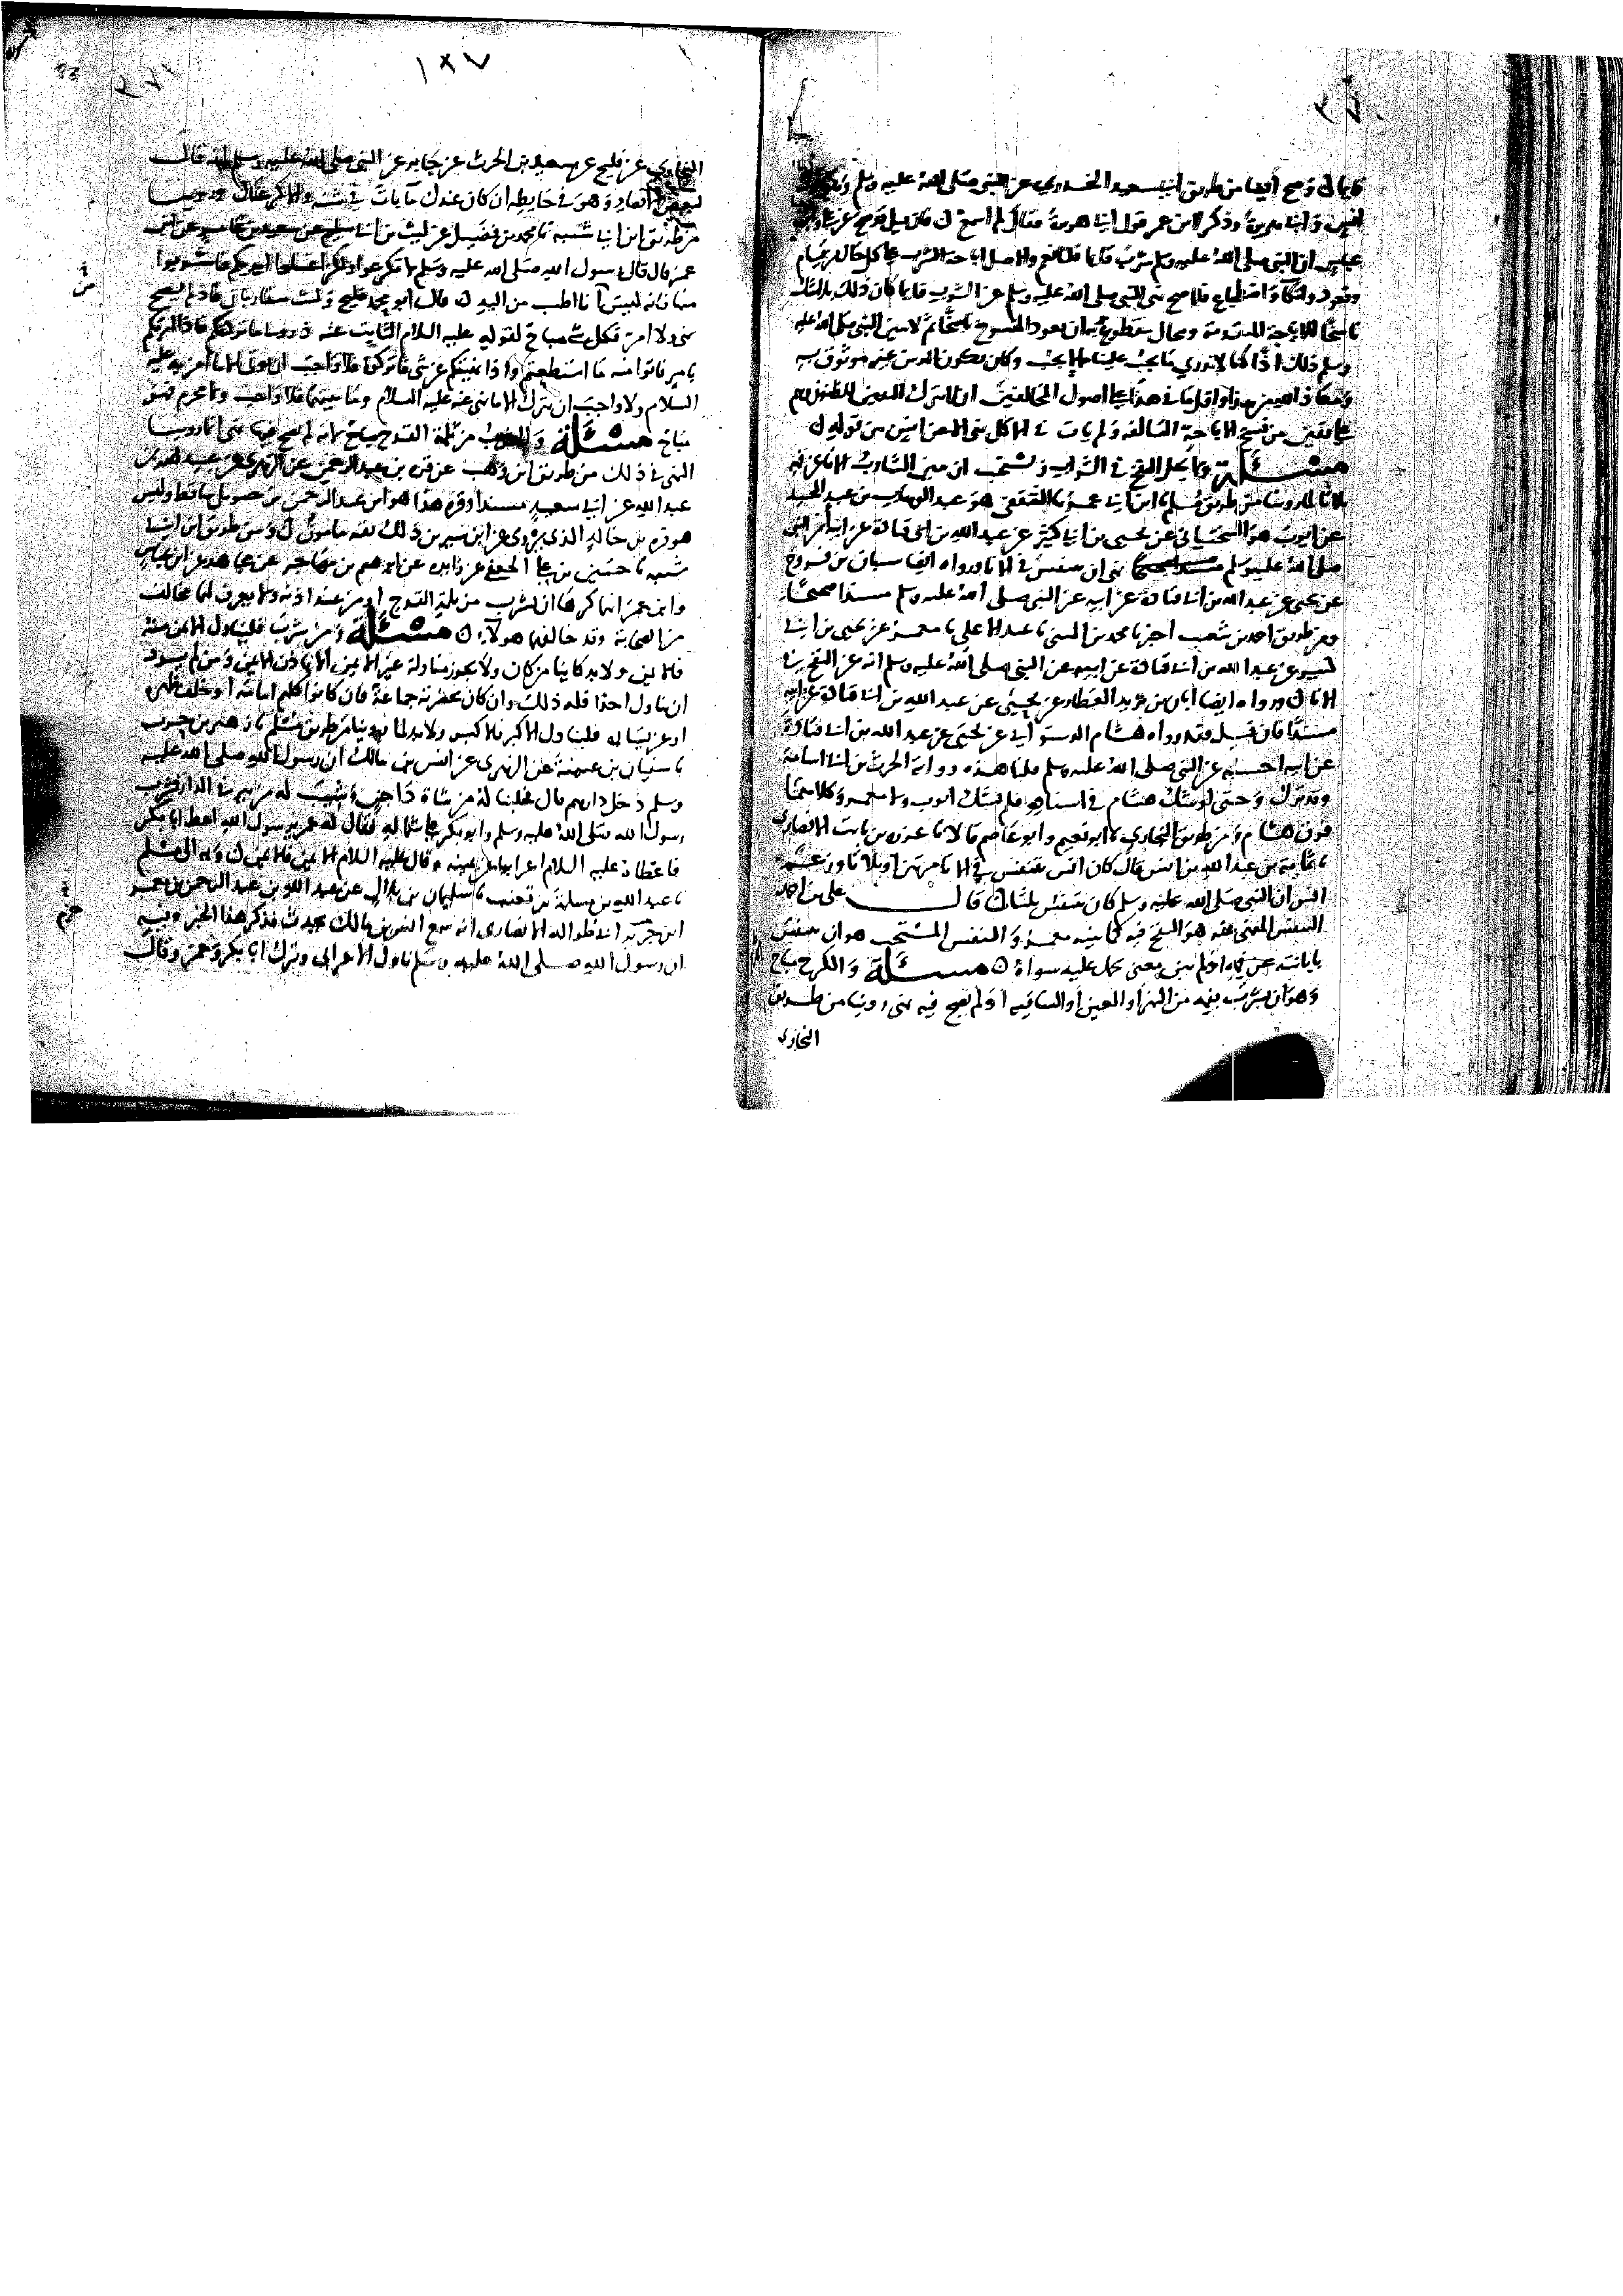 قايما ن وصح أيضا من طريق ابي سعيد الخدري عن النبي صلى الله عليه وسلم
انس وابي هريرة وذكر لابن عمر قول ابي هريرة فقال لم اسمع ن فان قيل قد صح عن علي وابن
عباس ان النبي صلى الله عليه وسلم شرب قايما قلنا نعم والاصل اباحة الشرب على كل حال من قيام
وقعود واتكا واضطجاع فلما صح نهي النبي صلى الله عليه وسلم عن الشرب قايما كان ذلك بلا شك
ناسخا للاباحة المتقدمة ومحال مقطوع به ان يعود المنسوخ ناسخا ثم لا يبين النبي صلى الله عليه
وسلم ذلك اذا كنا لا ندري ما يجب علينا مما لا يجب وكان يكون الدين غير موثوق به
ومعاذ الله من هذا واقل ما في هذا على اصول المخالفين ان لا يترك اليقين للظنون وهم
على يقين من نسخ الاباحة السالفة ولم يات في الاكل نهي الا عن انس من قوله ن
مسئلة ولا يحل النفخ في الشراب ويستحب ان يبين الشارب الاناء عن فيه
ثلاثا لما روينا من طريق مسلم نا ابن ابي عمر نا الثقفي هو عبد الوهاب بن عبد المجيد
عن ايوب هو السختياني عن يحيى بن ابي كثير عن عبد الله بن ابي قتادة عن ابيه ان النبي
صلى الله عليه وسلم نهى ان يتنفس في الانا ورواه ايضا سبان بن فروخ
عن يحيى عن عبد الله بن ابي قتادة عن ابيه عن النبي صلى الله عليه وسلم مسندا صحيحا
ومن طريق احمد بن شعيب اخبرنا محمد بن المثنى نا عبد الاعلى نا معمر عن يحيى بن ابي
كثير عن عبد الله بن ابي قتادة عن ابيه عن النبي صلى الله عليه وسلم انه عن النفخ في
الانا ن ورواه ايضا ابان بن يزيد العطار عن يحيى عن عبد الله بن ابي قتادة عن ابيه
مسندا فان قيل فقد رواه هشام الدستوائي عن يحيى عن عبد الله بن ابي قتادة
عن ابيه احسبه عن النبي صلى الله عليه وسلم قلنا هذه رواية الحرث بن ابي اسامة
وقد ترك وحتى لو شك هشام في اسناده فلم يشك ايوب ولا معمر وكلاهما
فوق هشام ومن طريق البخاري نا ابو نعيم وابو عاصم قالا نا عزرة بن ثابت الانصاري
نا ثمامة بن عبد الله بن انس قال كان انس يتنفس في الانا مرتين او ثلاثا وزعم
انس ان النبي صلى الله عليه وسلم كان يتنفس بثلث ن قال علي بن احمد
التنفس المنهي عنه هو النفخ فيه كما بينه معمر والتنفس المستحب هو ان يتنفس
بابانته عن فيه اذ لم يبق معنى يحمل عليه سواه ن مسئلة والكرع مباح
وهو ان يشرب بفيه من النهر او العين او الساقية اذ لم يصح فيه نهي روينا من طريق
البخاري
١٨٧
البخاري عن فليح عن سعيد بن الحرث عن جابر عن النبي صلى الله عليه وسلم انه قال
لبعض الانصار وهو في حايطه ان كان عندك ما بات في شنه والا كرعنا ن وروينا
من طريق ابن ابي شيبة نا محمد بن فضيل عن ليث بن ابي سليم عن سعيد بن عامر عن ابن
عمر قال قال رسول الله صلى الله عليه وسلم لا تكرعوا ولكن اغسلوا ايديكم فاشربوا
منها فانه ليس انا اطيب من اليد ن قال ابو محمد فليح وليث متقاربان فاذ لم يصح
نهي ولا امر فكل شي مباح لقوله عليه السلام الثابت عنه ذروني ما تركتكم فاذا امرتكم
بامر فاتوا منه ما استطعتم واذا نهيتكم عن شي فاتركوه فلا واجب ان يوتى الا ما امر به عليه
السلام ولا واجب ان يترك الا ما نهى عنه عليه السلام وما بينهما فلا واجب ولا محرم فهو
مباح مسئلة والشرب من ثلمة القدح مباح لانه لم يصح فيها نهي انما روينا
النهي في ذلك من طريق ابن وهب عن قرة بن عبد الرحمن عن الزهري عن عبيد الله بن
عبد الله عن ابي سعيد مسندا وقرة هذا هو ابن عبد الرحمن بن حيويل ساقط وليس
هو قرة بن خالد الذي يروي عن ابن سيرين ذلك ثقة مامون ن ومن طريق ابن ابي
شيبة نا حسين بن علي الجعفي عن زايدة عن ابرهيم بن مهاجر عن مجاهد عن ابن عباس
وابن عمر انهما كرها ان يشرب من ثلمة القدح او من عند اذنه ولا يعرف لهما مخالف
من الصحابة وقد خالفهما هولاء ن مسئلة ومن شرب فليناول الايمن منه
فالايمن ولا بد كاينا من كان ولا يجوز مناولة غير الايمن الا باذن الايمن ومن لم يرد
ان يناول احدا فله ذلك وان كان بحضرته جماعة فان كانوا كلهم امامه او خلف ظهره
او عن يساره فليناول الاكبر فالاكبر ولا بد لما روينا من طريق مسلم نا زهير بن حرب
نا سفيان بن عيينة عن الزهري عن انس بن مالك ان رسول الله صلى الله عليه
وسلم دخل دارهم قال فحلبنا له من شاة داجن وشيب له من بير في الدار فشرب
رسول الله صلى الله عليه وسلم وابو بكر عن شماله فقال له عمر يرسول الله اعط ابا بكر
فاعطاه عليه السلام اعرابيا عن يمينه وقال عليه السلام الايمن فالايمن ن وبه الى مسلم
نا عبد الله بن مسلمة بن قعنب نا سليمان بن بلال عن عبد الله بن عبد الرحمن بن معمر
ابن حزم ابي طوالة الانصاري انه سمع انس بن مالك يحدث فذكر هذا الخبر وفيه
ان رسول الله صلى الله عليه وسلم ناول الاعرابي وترك ابا بكر وعمر وقال